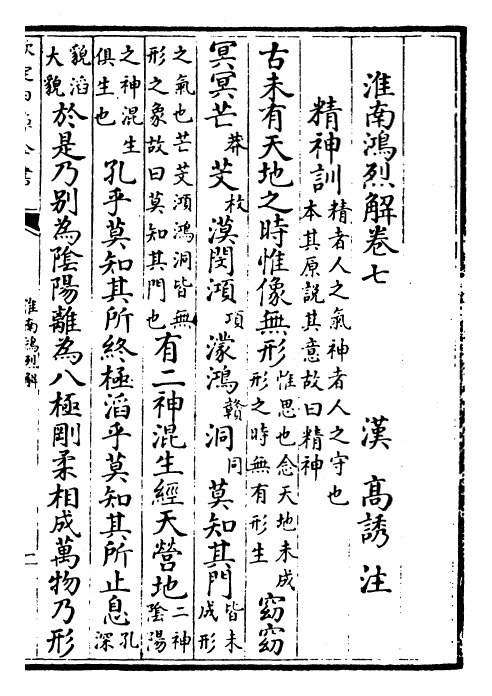 淮南鴻烈解卷七
漢 高誘 注
精神訓精者人之氣神者人之守也本其原說其意故曰精神
古未有天地之時惟像無形惟思也念天地未成形之時無有形生窈窈
冥冥芒莽芠枚漠閔澒項濛鴻贛洞同莫知其門皆未成形
之氣也芒芠澒鴻洞皆無形之象故曰莫知其門也有二神混生經天營地二神陰陽
之神混生俱生也孔乎莫知其所終極滔乎莫知其所止息孔深
貌滔大貌於是乃别為陰陽離為八極剛柔相成萬物乃形
淮南鴻烈解